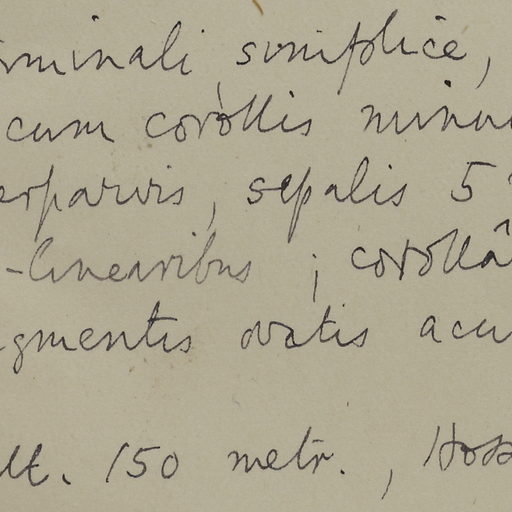 rminali simplice,
cum corollis minu
erparvis, sepalis 5
-linearibus ; corollâ
gmentis ovatis acu
lt. 150 metr. , Hoss